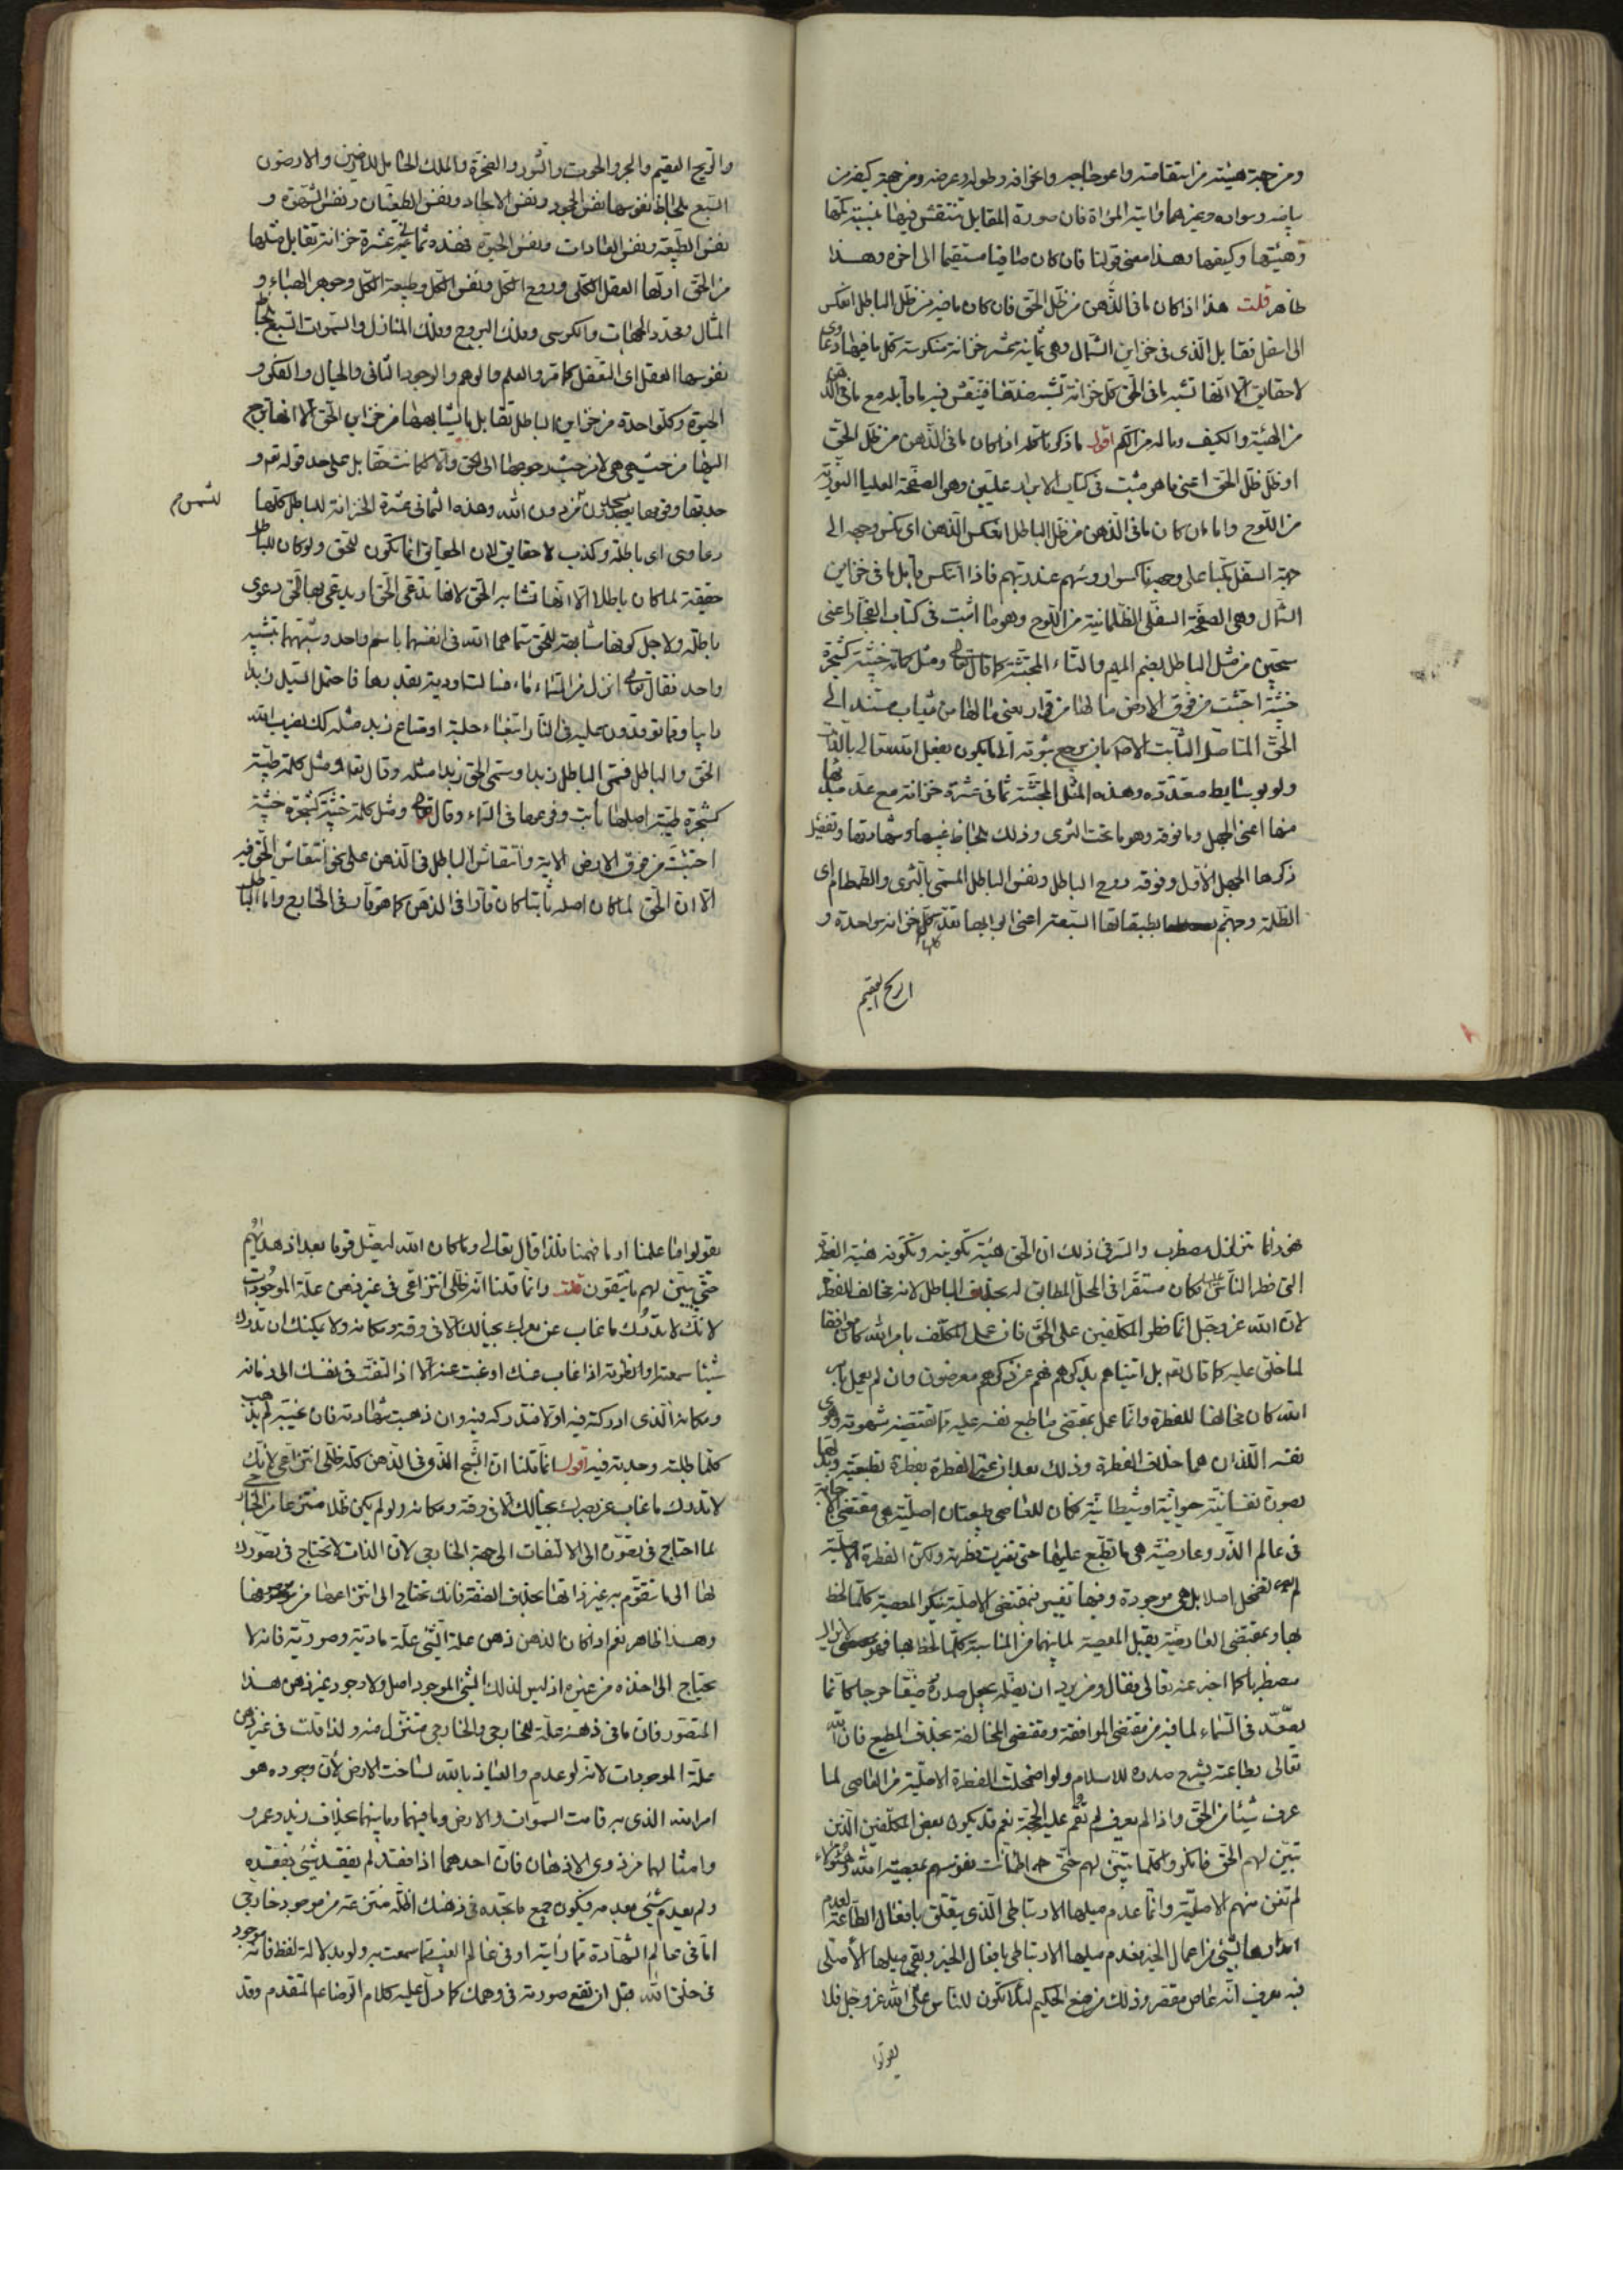 ومن جهة هيئته من استقامته واعوجاجه وانحرافه وطوله وعرضه ومن جهة كيفه من
بياضه وسواده وغيرهما وانية المرءاة فان صورة المقابل تنتقش فيها بنسبة كمها
وهيئتها وكيفها وهذا معنى قولنا فان كان صافيا مستقيما الى اخره وهذا
ظاهر قلت هذا اذا كان ما في الذهن من ظل الحق فان كان ما فيه من ظل الباطل انعكس
الى اسفل فقابل الذى في خزاين الشمال وهي ثمانية عشر خزانة منكوسة كل ما فيها دعاوى
لا حقايق الا انها تشبه ما في الحق كل خزانة تشبه ضدها فينتقش فيه ما قابله مع ما في الذهن
من الهيئة والكيف وما له من الكم اقول ما ذكرنا كله اذا كان ما في الذهن من ظل الحق
او ظل ظل الحق اعني ما هو مثبت في كتاب الابرار عليين وهي الصفحة العليا النورية
من اللوح واما ان كان ما في الذهن من ظل الباطل انعكس الذهن اي نكس وجهه الى
جهة السفل مكبا على وجهه ناكسوا رؤسهم عند ربهم فاذا انتكس قابل ما في خزاين
الشمال وهي الصفحة السفلى الظلمانية من اللوح وهو ما اثبت في كتاب الفجار اعنى
سجين من مثل الباطل بضم الميم والثاء المجتثة كما قال تعالى ومثل كلمة خبيثة كشجرة
خبيثة اجتثت من فوق الارض ما لها من قرار يعني ما لها من ثبات مستند الى
الحق المتاصل الثابت الاصل بان يرجع ثبوته الى ما يكون بفعل الله تعالى بالذات
ولو بوسايط متعددة وهذه المثل المجتثة ثماني عشرة خزانة مع عد مبدئها
منها اعني الجهل وما فوقه وهو ما تحت الثرى وذلك بلحاظ غيبها وشهادتها وتفصيل
ذكرها الجهل الاول وفوقه روح الباطل ونفس الباطل المسمى بالثرى والطمطام اى
الظلمة وجهنم بطبقاتها السبعة اعني ابوابها تعد كلها خزانة واحدة و
الريح العقيم
والريح العقيم والبحر والحوت والثور والصخرة والملك الحامل للارضين والارضون
السبع بلحاظ نفوسها نفس الجمود ونفس الالحاد ونفس الطغيان ونفس الشهوة و
نفس الطبيعة ونفس العادات ونفس الحيوة فهذه ثمانية عشرة خزانة تقابل مثلها
من الحق اولها العقل الكلي وروح الكل ونفس الكل وطبيعة الكل وجوهر الهباء و
المثال ومحدد الجهات والكرسي وفلك البروج وفلك المنازل والسموات السبع بلحاظ
نفوسها العقل اى التعقل كما مر والعلم والوهم والوجود الثاني والخيال والفكر و
الحيوة وكل واحدة من خزاين الباطل تقابل ما يشابهها من خزاين الحق الا انها ترجع
اليها من حيث هي هي لا من حيث رجوعها الى الحق والا لما تتقابل على حد قوله تعالى و
جدتها وقومها يسجدون من دون الله وهذه الثماني عشرة الخزانة للباطل كلها
للشمس
دعاوى اى باطلة وكذب لا حقايق لان الحقايق انما تكون للحق ولو كان للباطل
حقيقة لما كان باطلا الا انها تشابه الحق لانها تدعى الحق او يدعى بها الحق دعوى
باطلة ولاجل كونها مشابهة للحق سماهما الله في انفسهما باسم واحد وشبههما بتشبيه
واحد فقال تعالى انزل من السماء ماء فسالت اودية بقدرها فاحتمل السيل زبدا
رابيا ومما توقدون عليه في النار ابتغاء حلية او متاع زبد مثله كذلك يضرب الله
الحق والباطل فسمى الباطل زبدا وسمى الحق زبدا مثله وقال تعالى ومثل كلمة طيبة
كشجرة طيبة اصلها ثابت وفرعها في السماء وقال تعالى ومثل كلمة خبيثة كشجرة خبيثة
اجتثت من فوق الارض الاية وانتقاش الباطل في الذهن على نحو انتقاش الحق فيه
الا ان الحق لما كان اصله ثابتا كان قارا في الذهن كما هو قار في الخارج واما الباطل
فهو انما يتزلزل مضطرب والسر في ذلك ان الحق هيئة تكوينه وتكونه هيئة الفطرة
التي فطر الناس عليها فكان مستقرا في المحل المطابق له بخلاف الباطل لانه مخالف للفطرة
لان الله عز وجل انما فطر المكلفين على الحق فان عمل المكلف بامر الله كان موافقا
لما خلق عليه كما قال تعالى بل اتيناهم بذكرهم فهم عن ذكرهم معرضون وان لم يعمل بامر
الله كان مخالفا للفطرة وانما عمل بمقتضى ما طبع نفسه عليه مما تقتضيه شهوته وهوى
نفسه اللذان هما خلاف الفطرة وذلك بعد ان غير الفطرة بفطرة تطبعية وبدلها
بصورة نفسانية حيوانية او شيطانية فكان للعاصي طبيعتان اصلية هي مقتضى الاجابة
في عالم الذر وعارضية هي ما تطبع عليها حتى تغيرت فطرته ولكن الفطرة الاصلية
لم تضمحل اصلا بل هي موجودة وفيها تغيير فبمقتضى الاصلية ينكر المعصية كلما لحظ
بها وبمقتضى العارضية يقبل المعصية لما بينهما من المناسبة كلما لحظ بها فهو لا يزال
مضطربا كما اخبر عنه تعالى فقال ومن يرد ان يضله يجعل صدره ضيقا حرجا كانما
يصعد في السماء لما فيه من مقتضى الموافقة ومقتضى المخالفة بخلاف المطيع فان الله
تعالى بطاعته يشرح صدره للاسلام ولو اضمحلت الفطرة الاصلية من العاصي لما
عرف شيئا من الحق واذا لم يعرف لم تقم عليه الحجة نعم قد يكون بعض المكلفين الذين
تبين لهم الحق فانكروا كلما تبين لهم حتى اطمانت نفوسهم بمعصية الله وهؤلاء
لم تفن منهم الاصلية وانما عدم ميلها الارتباطي الذي يتعلق بافعال الطاعة لعدم
امدادها بشيء من اعمال الخير فعدم ميلها الارتباطي بافعال الخير وبقي ميلها الاصلي
فبه يعرف انه عاص مقصر وذلك من صنع الحكيم لئلا تكون للناس على الله عز وجل فلا
يقولوا
يقولوا ما علمنا او ما فهمنا فلذا قال تعالى وما كان الله ليضل قوما بعد اذ هديهم
حتى يبين لهم ما يتقون قلت وانما قلنا انه ظلي انتزاعي في غير ذهن علة الموجودات
لانك لا تدرك ما غاب عن بصرك بخيالك الا في وقته ومكانه ولا يمكنك ان تدرك
شيئا سمعته او نظرته اذا غاب عنك او غبت عنه الا اذا التفت في نفسك الى زمانه
ومكانه الذى ادركته فيه اولا فتدركه فيه وان ذهبت شهادته فان غيبته لم تذهب
كلما طلبته وجدته فيه اقول انما قلنا ان الشبح الذى في الذهن كله ظلي انتزاعي لانك
لا تدرك ما غاب عن بصرك بخيالك الا في وقته ومكانه ولو لم يكن ظلا منتزعا من الخارجي
لما احتاج في تصوره الى الالتفات الى جهة الخارجي لان الذات لا تحتاج في تصورك
لها الى ما تتقوم به غير ذاتها بخلاف الصفة فانك تحتاج الى انتزاعها من موصوفها
وهذا ظاهر نعم اذا كان الذهن ذهن علة الشيء علة مادية وصورية فانه لا
يحتاج الى اخذه من غيره اذ ليس لذلك الشيء الموجود اصل ولا وجود غير ذهن هذا
المتصور فان ما في ذهنه علة للخارجي والخارجي متنزل منه ولذا قلت في غير ذهن
علة الموجودات لانه لو عدم والعياذ بالله لساخت الارض لان وجوده هو
امر الله الذي به قامت السموات والارض وما فيهما وما بينهما بخلاف زيد وعمرو
وامثالهما من ذوى الاذهان فان احدهما اذا فقد لم يفقد شيء بفقده
ولم يعدم شيء بعدمه فيكون جميع ما تجده في ذهنك اظلة منتزعة من موجود خارجي
اما في عالم الشهادة مما رايته او في عالم الغيب مما سمعت به ولو بدلالة لفظ فانه موجود
في خلق الله قبل ان تقع صورته في وهمك كما دل عليه كلام الرضا ع المتقدم وقد